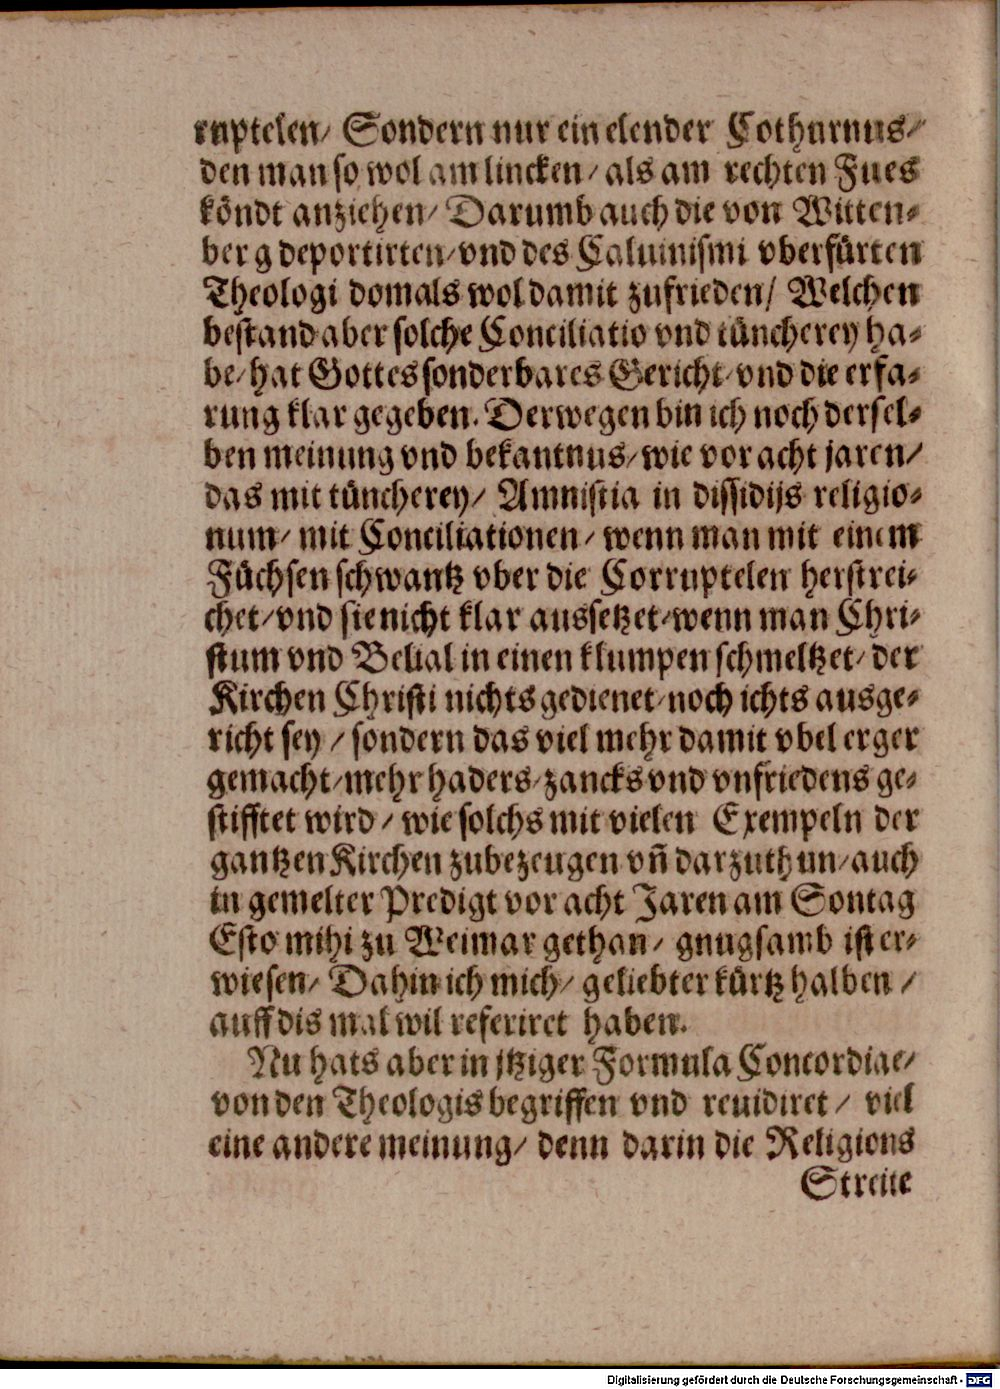 ruptelen/ Sondern nur ein elender Cothurnus/
den man so wol am lincken/ als am rechten Fues
köndt anziehen/ Darumb auch die von Witten-
berg deportirten/ vnd des Caluinismi vberfürten
Theologi domals wol damit zufrieden/ Welchen
bestand aber solche Conciliatio vnd tüncherey ha-
be/ hat Gottes sonderbares Gericht/ vnd die erfa-
rung klar gegeben. Derwegen bin ich noch dersel-
ben meinung vnd bekantnus/ wie vor acht jaren/
das mit tüncherey/ Amnistia in dissidijs religio-
num/ mit Conciliationen/ wenn man mit einem
Füchsen schwantz vber die Corruptelen herstrei-
chet/ vnd sie nicht klar aussetzet/ wenn man Chri-
stum vnd Belial in einen klumpen schmeltzet/ der
Kirchen Christi nichts gedienet/ noch ichts ausge-
richt sey/ sondern das viel mehr damit vbel erger
gemacht/ mehr haders/ zancks vnd vnfriedens ge-
stifftet wird/ wie solchs mit vielen Exempeln der
gantzen Kirchen zubezeugen vñ darzuthun/ auch
in gemelter Predigt vor acht Jaren am Sontag
Esto mihi zu Weimar gethan/ gnugsamb ist er-
wiesen/ Dahin ich mich/ geliebter kürtz halben/
auff dis mal wil referiret haben.
Nu hats aber in jtziger Formula Concordiae/
von den Theologis begriffen vnd reuidiret/ viel
eine andere meinung/ denn darin die Religions
Streite
Digitalisierung gefördert durch die Deutsche Forschungsgemeinschaft - DFG